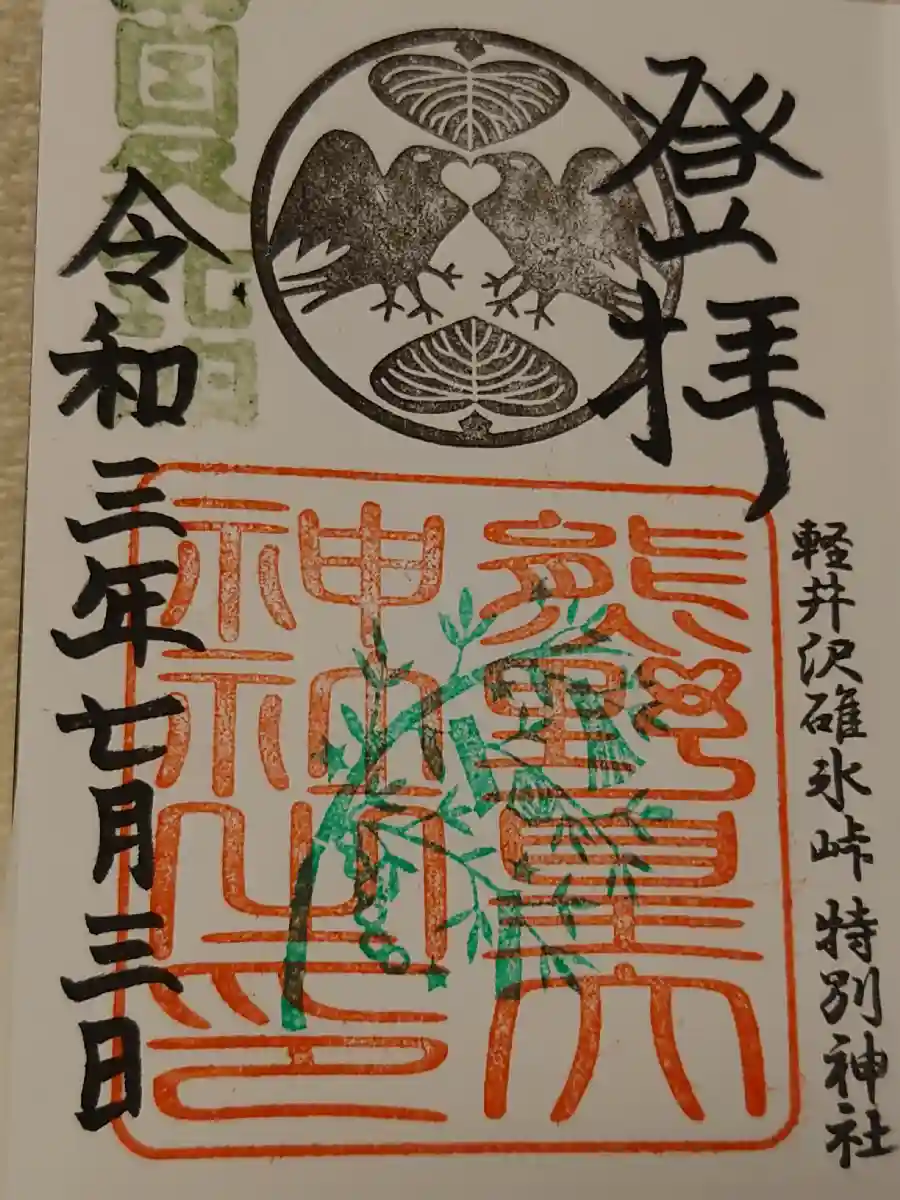 登拝
軽井沢碓氷峠特別神社
熊野皇大
神社之印
夏詣
令和三年七月三日